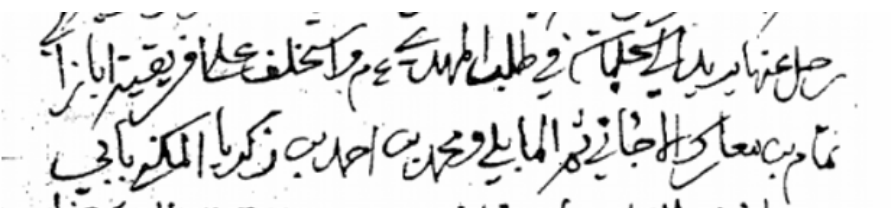 رحل عنها يريد سجلماسة في طلب المهدي ع م واستخلف على افريقية ابا زاكي
تمام بن معارك الاجاني ثم المايلي ومحمد بن احمد بن زكريا المكنى بابي